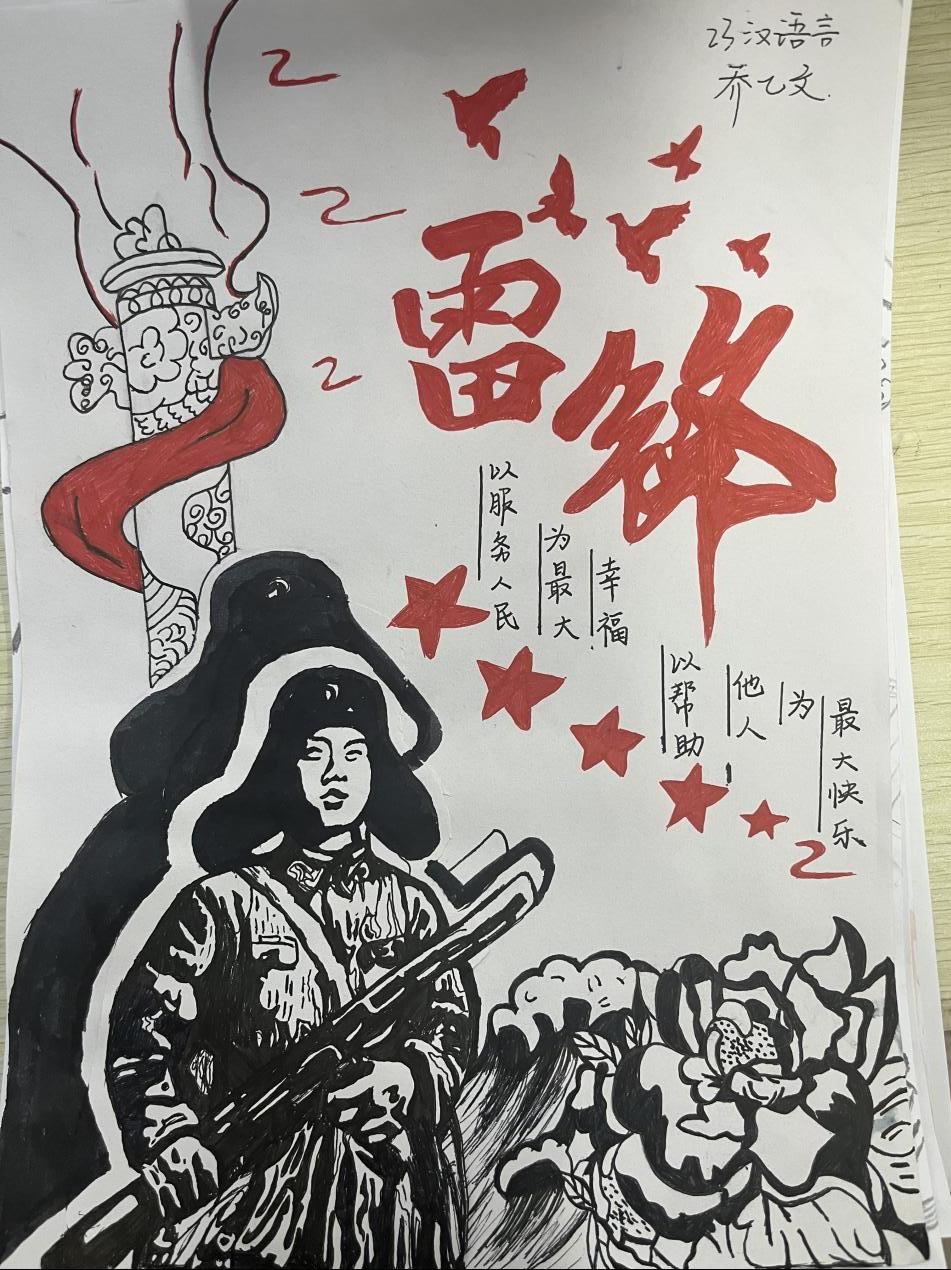 23汉语言
乔乙文.
雷锋
以服务人民
为最大
幸福
以帮助
他人
为
最大快乐